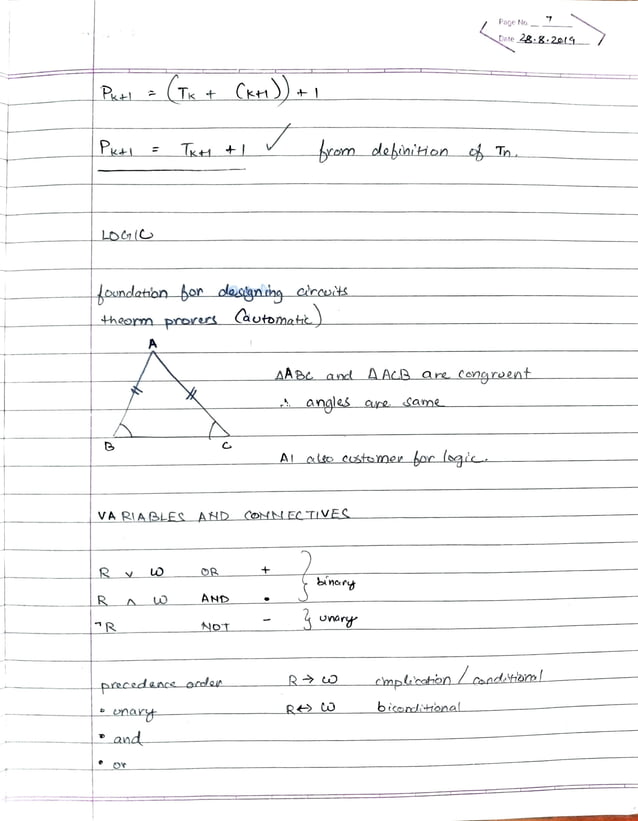 Page No. 7
Date 28.8.2019
P_{k+1} = (T_k + (k+1)) + 1
P_{k+1} = T_{k+1} + 1 ✓ from definition of T_n.
LOGIC
foundation for designing circuits
theorm provers (automatic)
A
B
C
△ABC and △ACB are congruent
∴ angles are same
AI also customer for logic.
VARIABLES AND CONNECTIVES
R ∨ W OR + } binary
R ∧ W AND •
¬R NOT - } unary
precedence order R → W implication / conditional
• unary R ↔ W biconditional
• and
• or